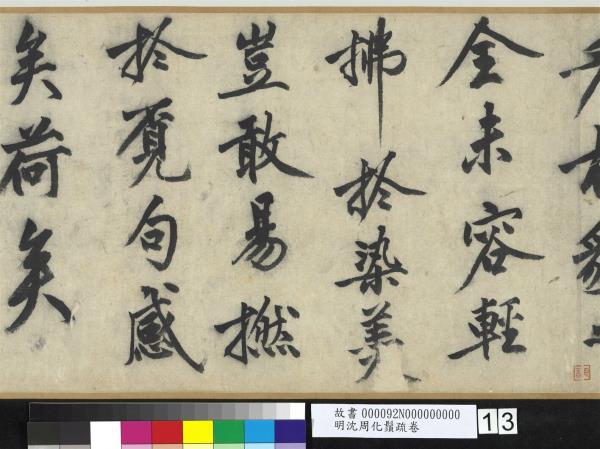 全未容輕
拂扵染羹
豈敢易撚
扵覓句感
矣荷矣
故書 000092N000000000
明沈周化鬚疏卷
13